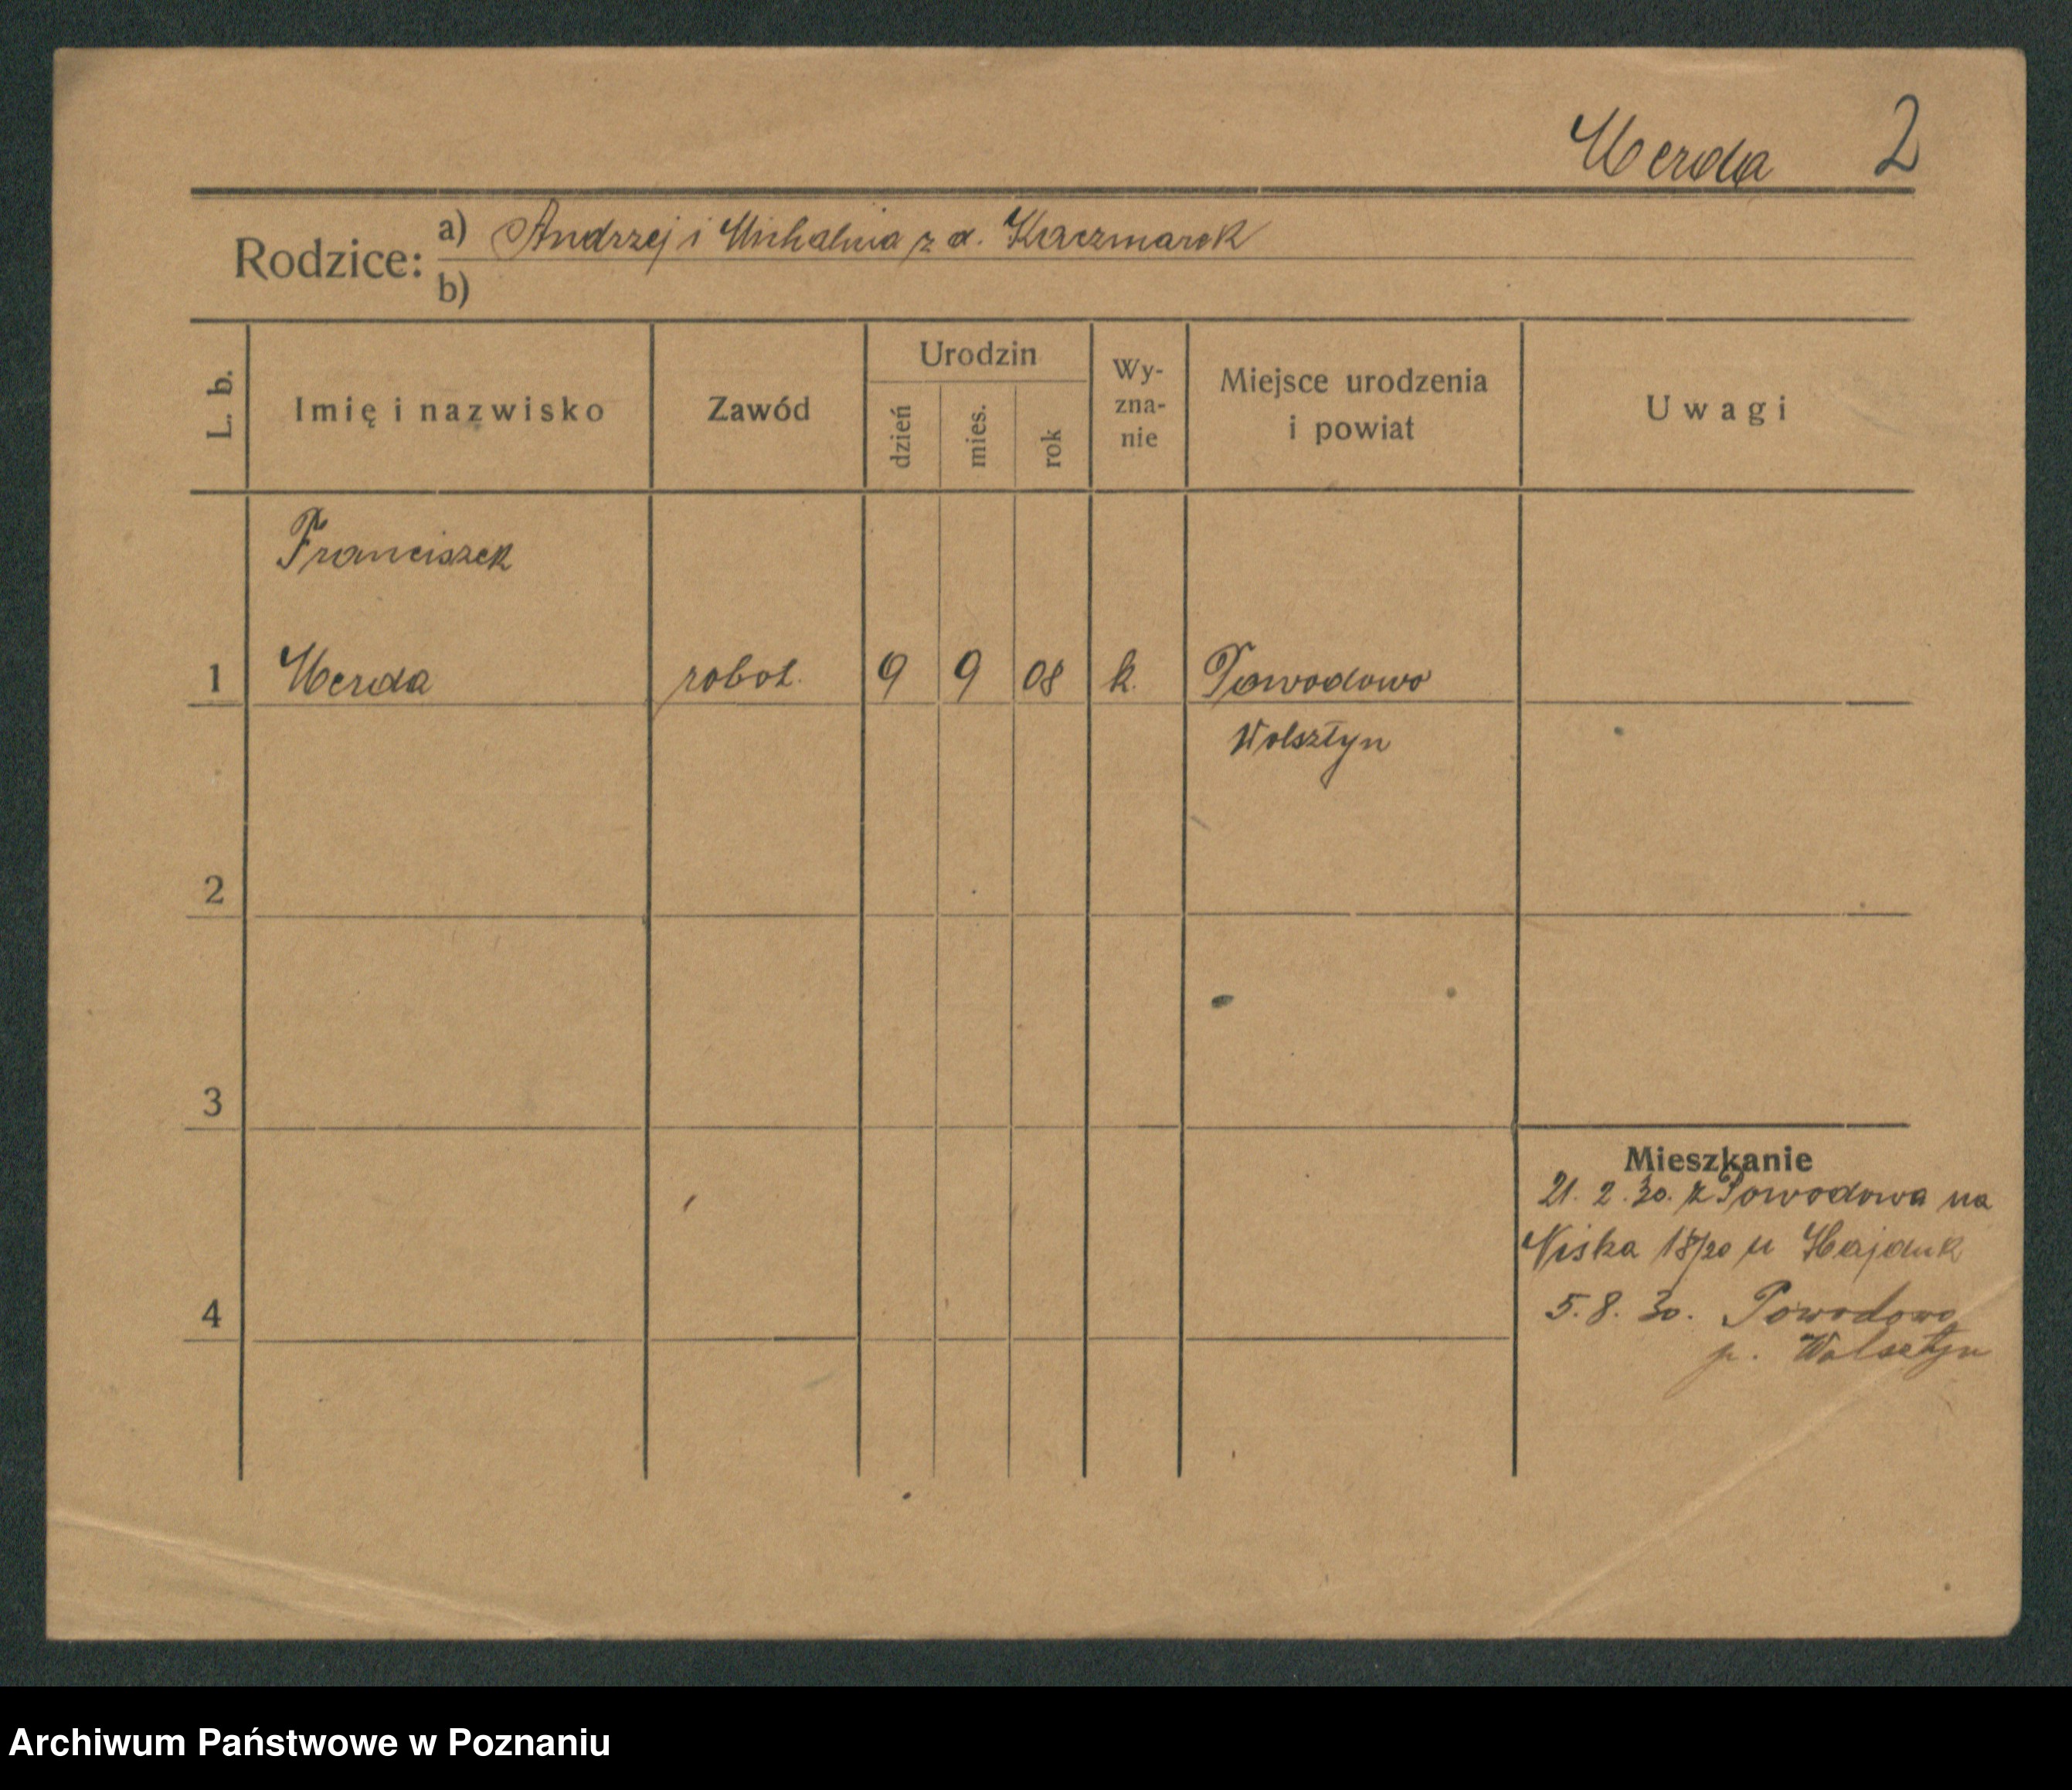 Werda 2
Rodzice: a) Andrzej i Michalina z d. Kaczmarek
b)
L. b. Imię i nazwisko Zawód Urodzin dzień mies. rok Wy-zna-nie Miejsce urodzenia i powiat Uwagi
Franciszek
1 Werda robot. 9 9 08 k. Powodowo
Wolsztyn
2
3
Mieszkanie
21. 2. 30. z Powodowa na
Niska 18/20 u Hajduk
4 5. 8. 30. Powodowo
p. Wolsztyn
Archiwum Państwowe w Poznaniu